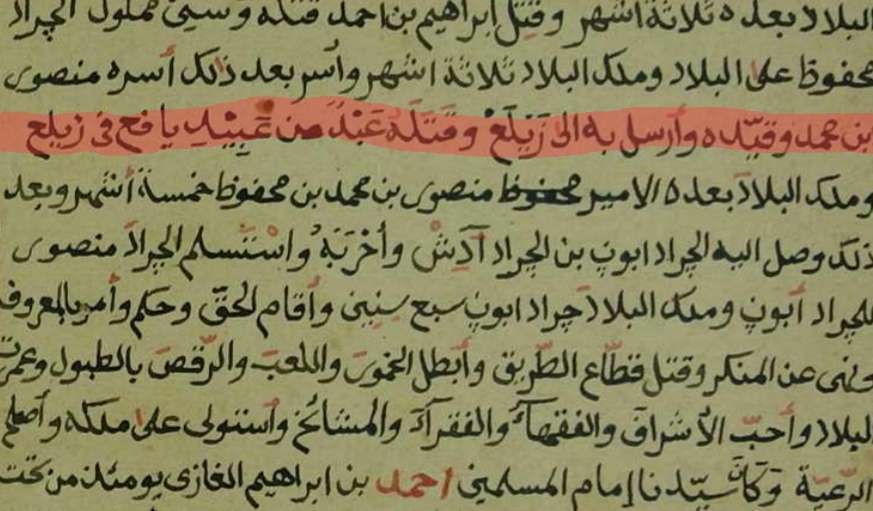 البلاد بعده ثلاثة اشهر وقتل ابراهيم بن احمد قتله وسيني مملوك الجراد
محفوظ على البلاد وملك البلاد ثلاثة اشهر وأسر بعد ذلك أسره منصور
بن محمد وقيّده وأرسل به الى زَيْلَعْ وقَتَلَهُ عَبْدٌ من عَبِيْدِ يافع في زيلع
وملك البلادَ بعده الامير محفوظ منصور بن محمد بن محفوظ خمسة أشهر وبعد
ذلك وصل اليه الجراد ابون بن الجراد آدِشْ وأخْرَبَهُ واسْتَسلم الجرادَ منصور
للجراد أبون وملك البلادَ جراد ابون سبع سنين وأقام الحقّ وحكم وأمر بالمعروف
ونهى عن المنكر وقتل قطّاع الطّريق وأبطل الخمورَ واللعبَ والرّقصَ بالطبول وعمرت
البلاد وأحبّ الأشرافَ والفقهآءَ والفقرآءَ والمشائخَ وأستولى على ملكه وأصلح
الرّعيّة وَكَانَ سيّدنا إمام المسلمين احمد بن ابراهيم الغازى يومئذ من تحت